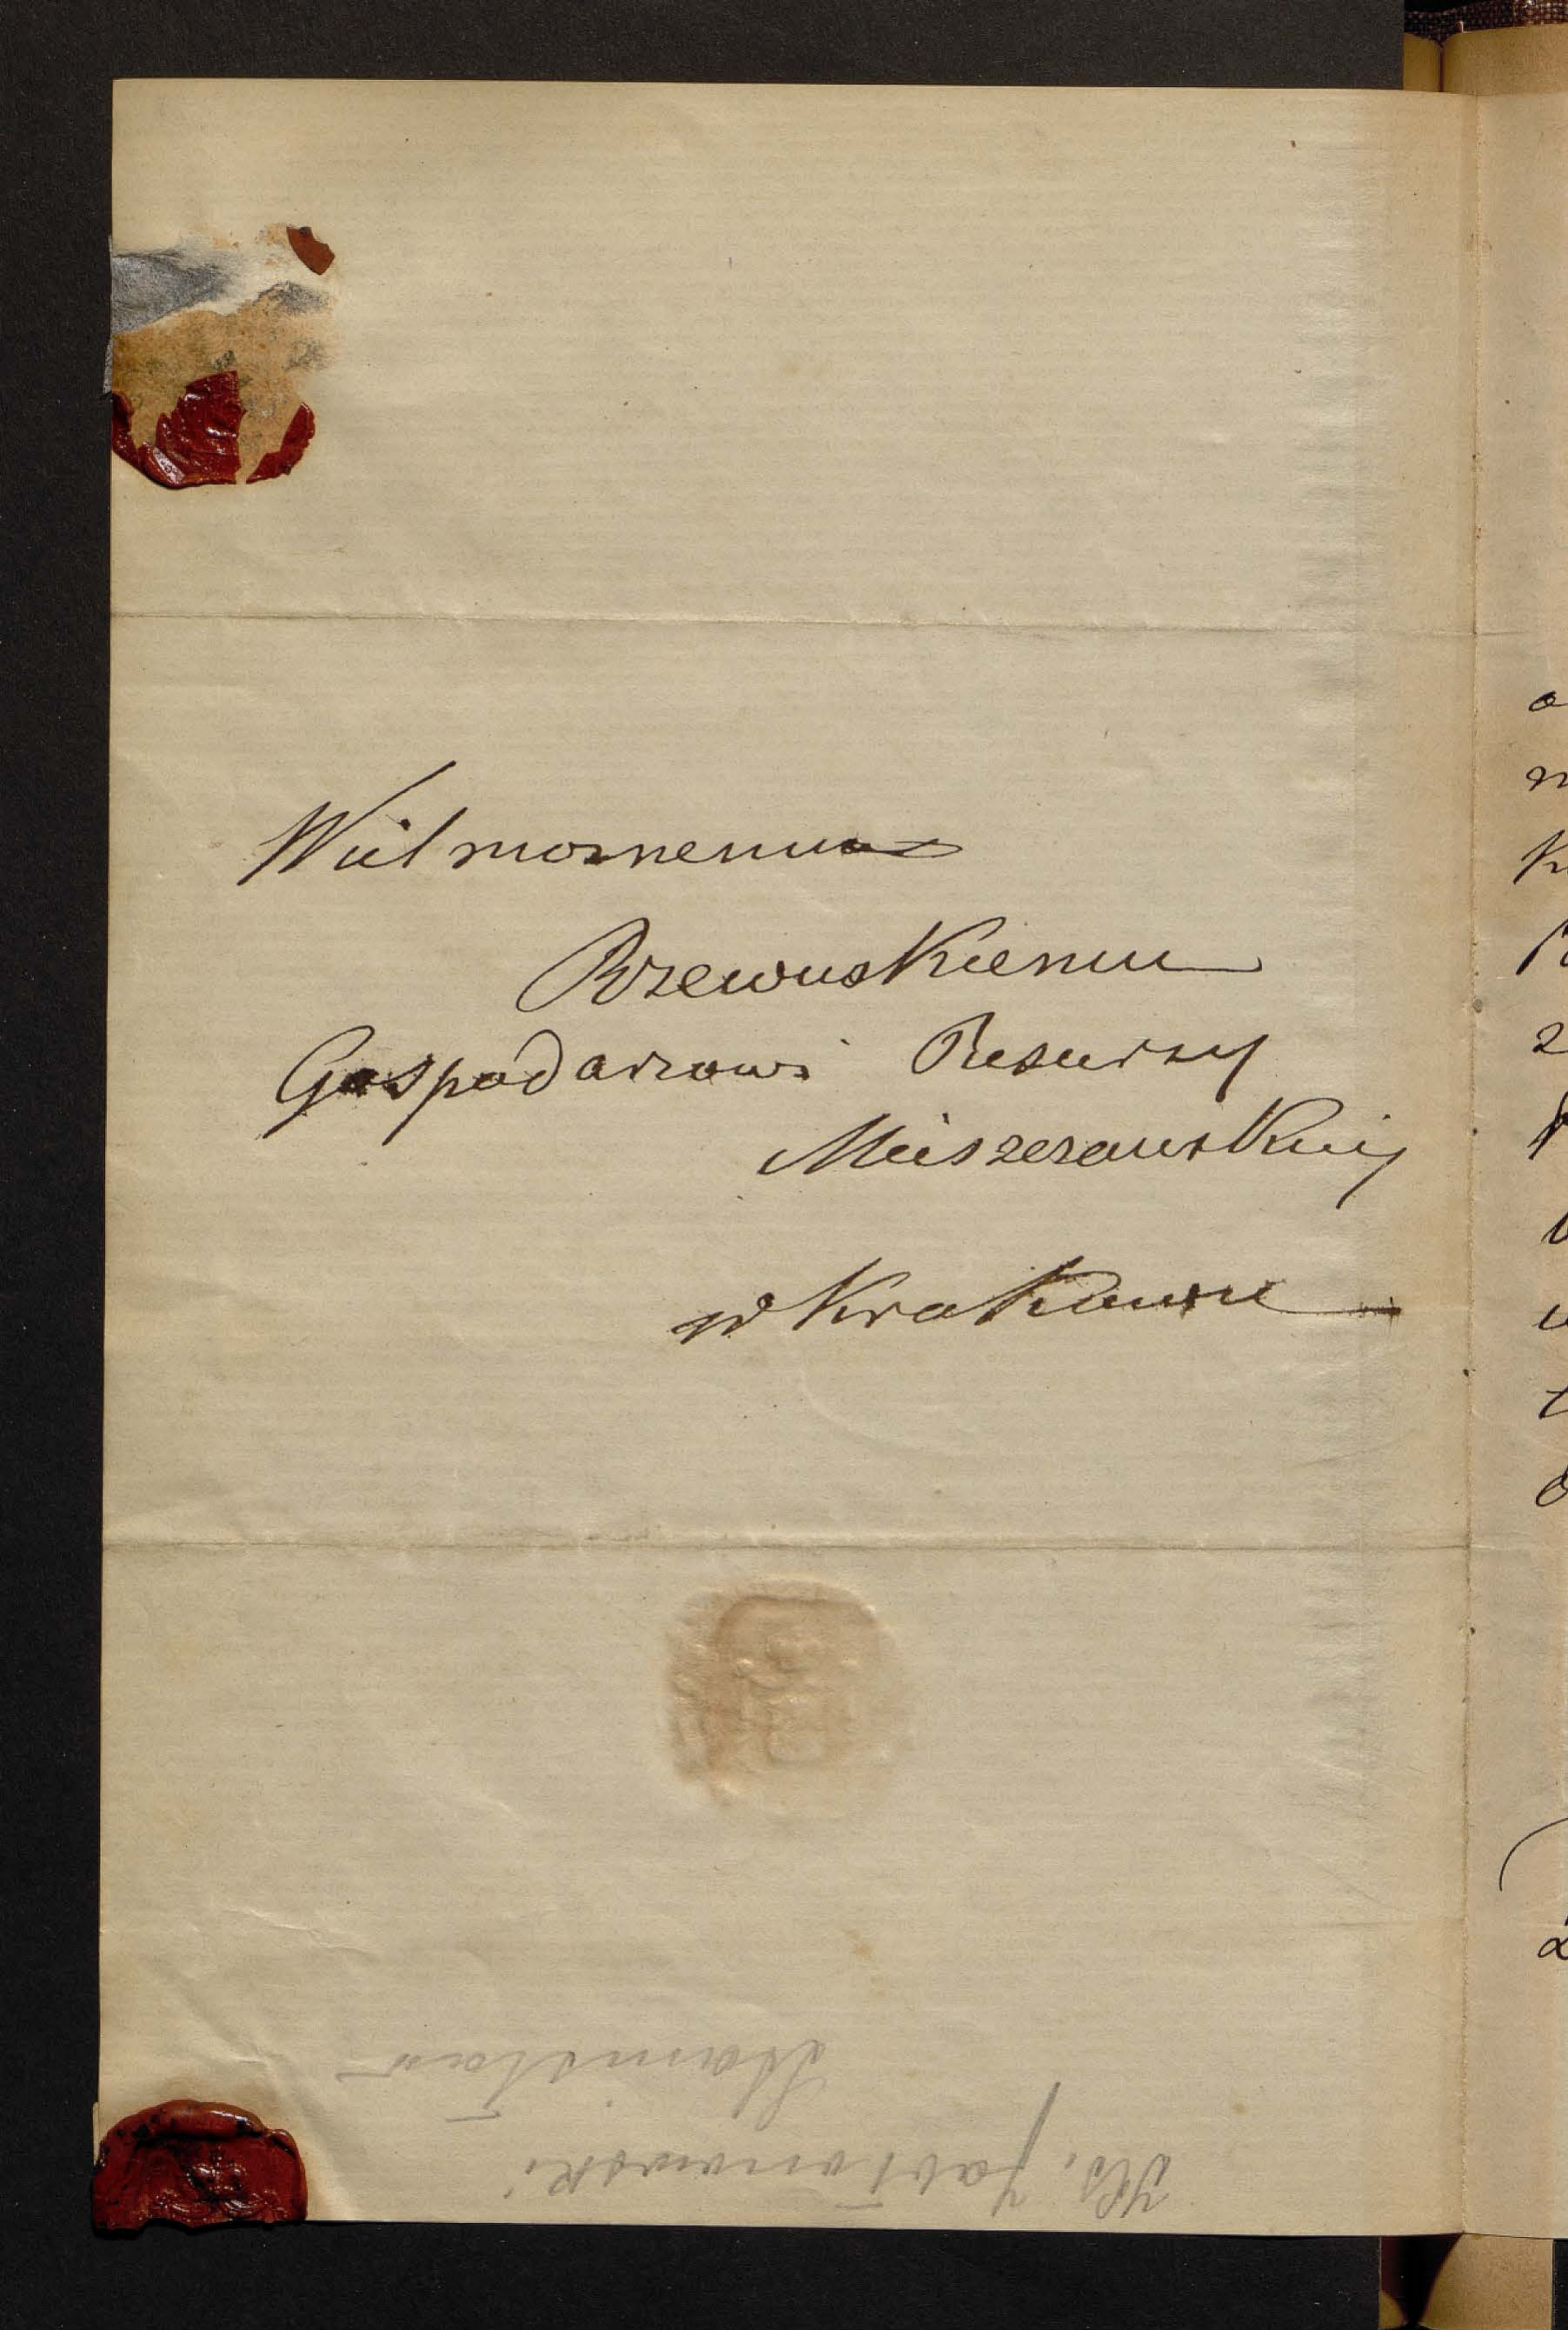 Wielmożnemu
Rzewuskiemu
Gospodarzowi Resursy
Mieszczańskiej
w Krakowie
Ks. Jabłonowski
Stanisław